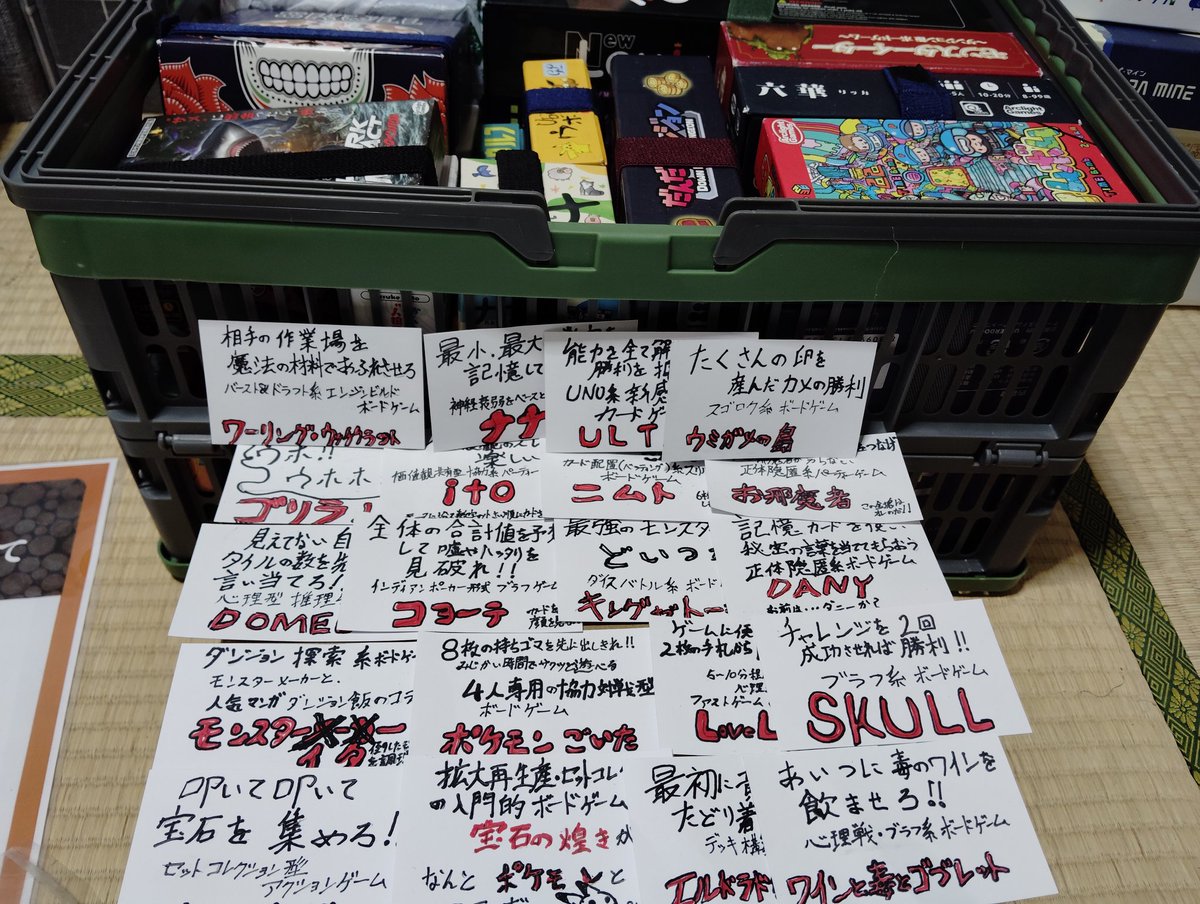 New
六華
リッカ
10-20分
8-99歳
Arclight Games
MINE
相手の作業場を
魔法の材料であふれさせろ
バースト&ドラフト系エンジンビルド
ボードゲーム
ワーリング・ウィッチクラフト
最小、最大
記憶して
神経衰弱をベースと
ナナ
能力を全て解
勝利を
UNO系新感
カードゲ
ULT
たくさんの卵を
産んだカメの勝利
スゴロク系ボードゲーム
ウミガメの島
ウホ!!
ウホホ
ゴリラ
楽しい
価値観共有型協力系パーティー
ito
カード配置(バッティング)系
ボードゲーム
ニムト
つなげ
正体隠匿系パーティーゲーム
お邪魔者
この金塊は
見えてない自
タイルの数を先
言い当てろ!
心理型推理
DOME
全体の合計値を予
して嘘やハッタリを
見破れ!!
インディアンポーカー形式ブラフゲーム
コヨーテ
最強のモンスタ
どいつ
ダイスバトル系ボード
キングオブトー
記憶カードを使い
秘密の言葉を当ててもらおう
正体隠匿系ボードゲーム
DANY
お前は…ダニーか?
ダンジョン探索系ボードゲー
モンスターメーカーと、
人気マンガダンジョン飯のコラ
モンスター
イター
8枚の持ちゴマを先に出しきれ!!
みじかい時間でサクッと遊べる
4人専用の協力対戦型
ボードゲーム
ポケモンごいた
ゲームに使
2枚の手札から
5~10分程
心理
ファストゲーム
LoveL
チャレンジを2回
成功させれば勝利!!
ブラフ系ボードゲーム
SKULL
叩いて叩いて
宝石を集めろ!
セットコレクション型
アクションゲーム
拡大再生産・セットコレ
の入門的ボードゲーム
宝石の煌きが
なんとポケモンと
最初に
たどり着
デッキ構築
エルドラド
あいつに毒のワインを
飲ませろ!!
心理戦・ブラフ系ボードゲーム
ワインと毒とゴブレット